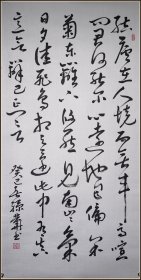 结廬在人境而无车马喧
问君何能尔心远地自偏采
菊东篱下悠然见南山山气
日夕佳飞鸟相与还此中有真
意欲辨已忘言 癸巳 书